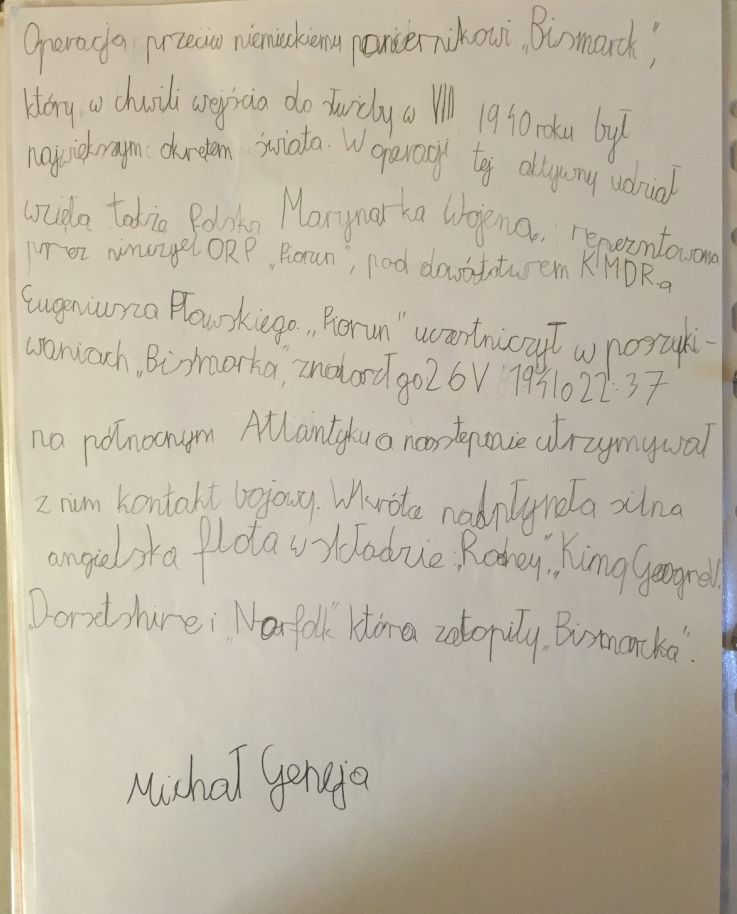 Operacja przeciw niemieckiemu pancernikowi „Bismarck",
który w chwili wejścia do służby w VIII 1940 roku był
największym okrętem świata. W operacji tej aktywny udział
wzięła także Polska Marynarka Wojena, reperzntowana
przez niszczyciel ORP „Piorun", pod dowództwem KMDR.a
Eugeniusza Pławskiego. „Piorun" uczestniczył w poszuki-
waniach „Bismarka", znalazł go 26 V 1941 o 22:37
na północnym Atlantyku a następnie utrzymywał
z nim kontakt bojowy. Wkrótce nadpłynęła silna
angielska flota w składzie: „Rodney", „King Geogre V.
„Dorsetshire i „Norfolk" które zatopiły „Bismarcka".
Michał Geneja